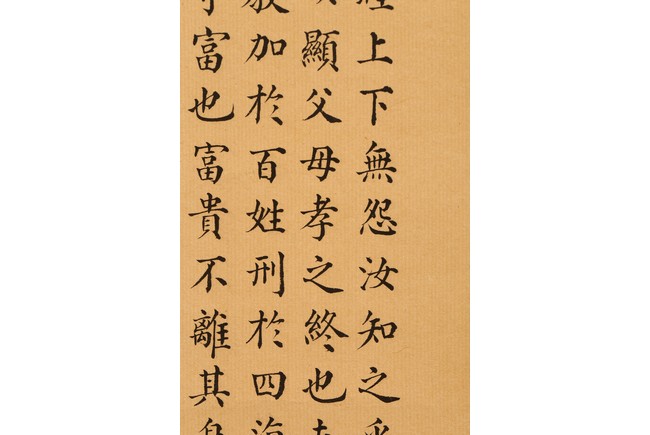 上下無怨汝知之
顯父母孝之終也
加於百姓刑於四
富也富貴不離其